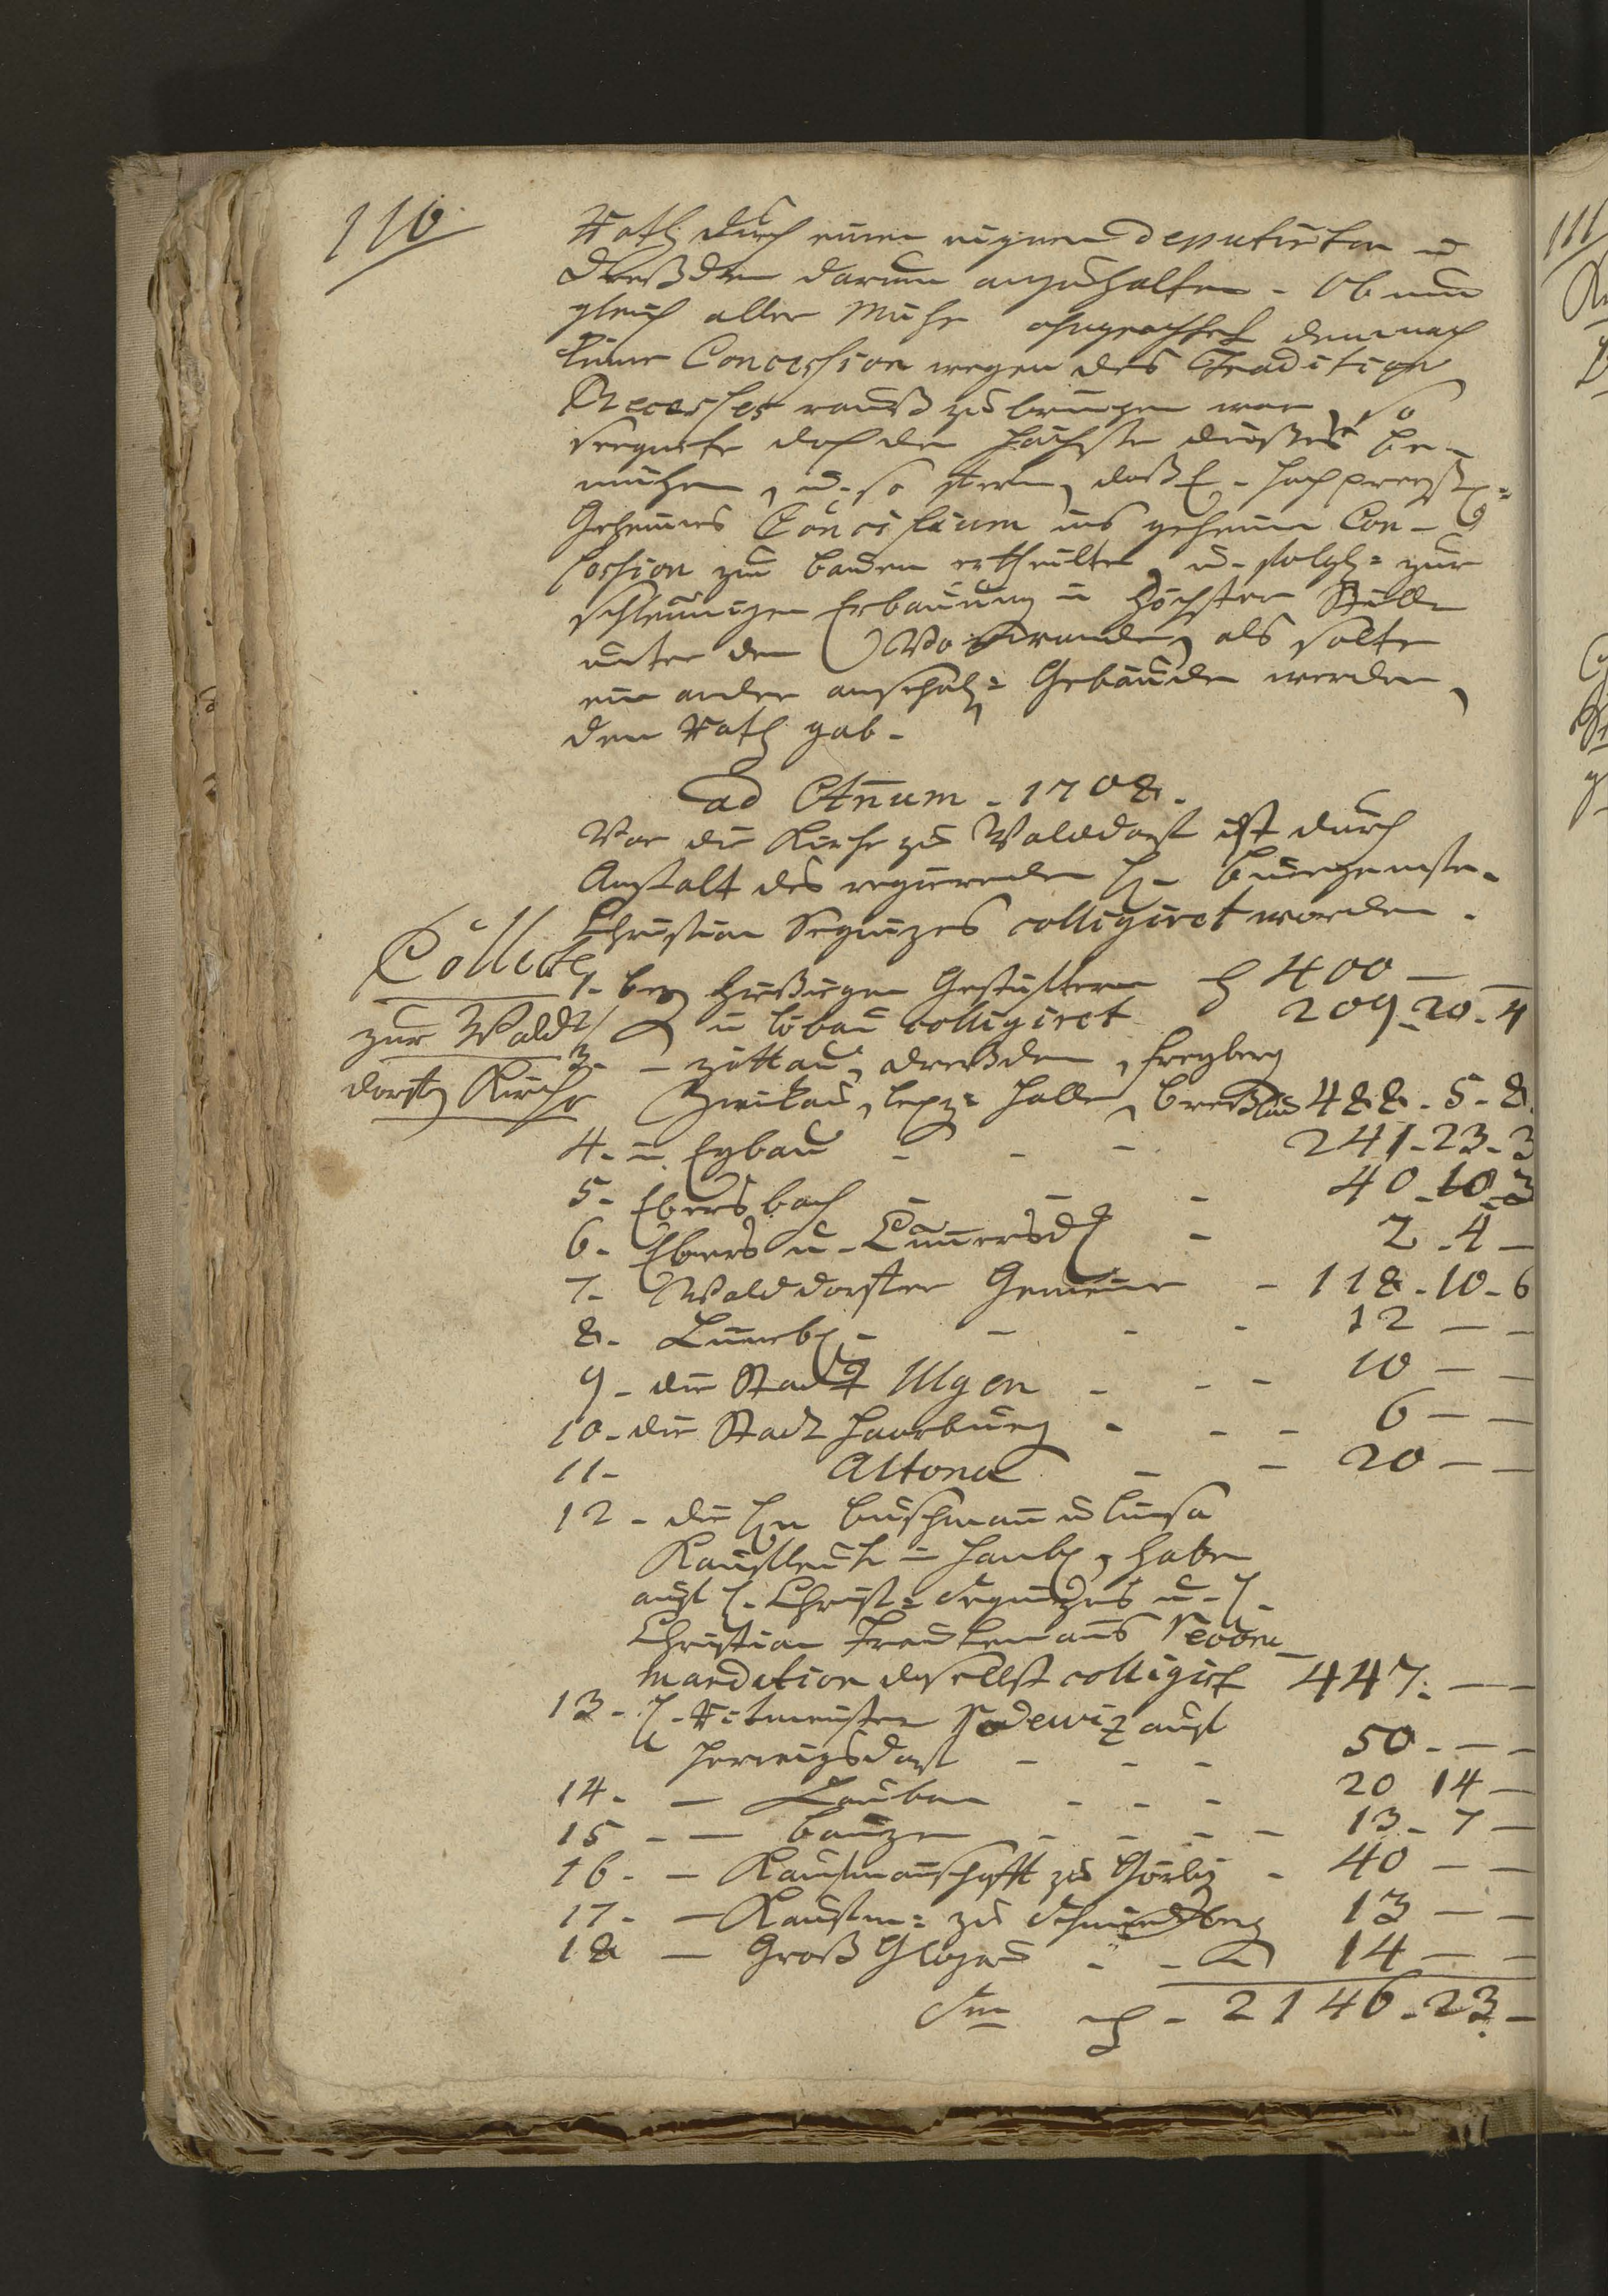 110
Rath durch einen eignen Deputirten in
Dreßden darum anzuhalten. Ob nun
gleich aller Mühe ohngeachtet dennoch
keine Concession wegen des Tradition
Recesses rauß zu bringen war, so
doch der höchste be-
mühen, u. so, daß E. Hochpreißl:
Geheimes Concilium ins geheim Con-
cession zu bauen ertheilte, u. solch: zur
schleunigen Erbauung in höchster Stille
unter dem Vorwande, als solte
ein ander Gebäude werden,
den Rath gab.
ad Annum. 1708.
Vor die Kirche zu Walddorf ist durch
Anstalt des regierenden H. Burgemstr.
Christian Seguizes colligiret worden.
Collecte
zur Wald
dorf. Kirche
1. bey hießigen Geschustern 400 —
2 in Löbau colligiret 209. 20. 4
3. — Zittau, Dreßden, Freyberg
Zwickau, Leipz: Halle, Breßlau 488. 5. 8.
4. in Eybau - - - 241. 23. 3
5. Ebersbach - - - 40. 10. 3
6. Ebers u. Cunnersd. - 2. 4 —
7. Walddorfer Gemeine - 118. 10. 6
8. Lüneb. - - - - 12 — —
9. die Stadt Ulzen - - - 10 — —
10. die Stadt Haarburg - - - 6 — —
11. Altona - - 20 — —
12. die Hn Buschman u
Kaufleute in Hamb. haben
auf H. Christ: Seguizes u. H.
Christian Recom
mandation daselbst colligirt 447. — —
13. H. Ritmeister Nodewiz auf
Herwigsdorf - - - 50. — —
14. — Lauban - - - 20 14 —
15 - — Bauzen - - - - 13. 7 —
16. — Kaufmanschafft zu Görliz - 40 — —
17. — Kaufm: zu Schmiedeberg 13 — —
18 — Groß Glogau - - 14 — —
Sm - 2146. 23. —
111